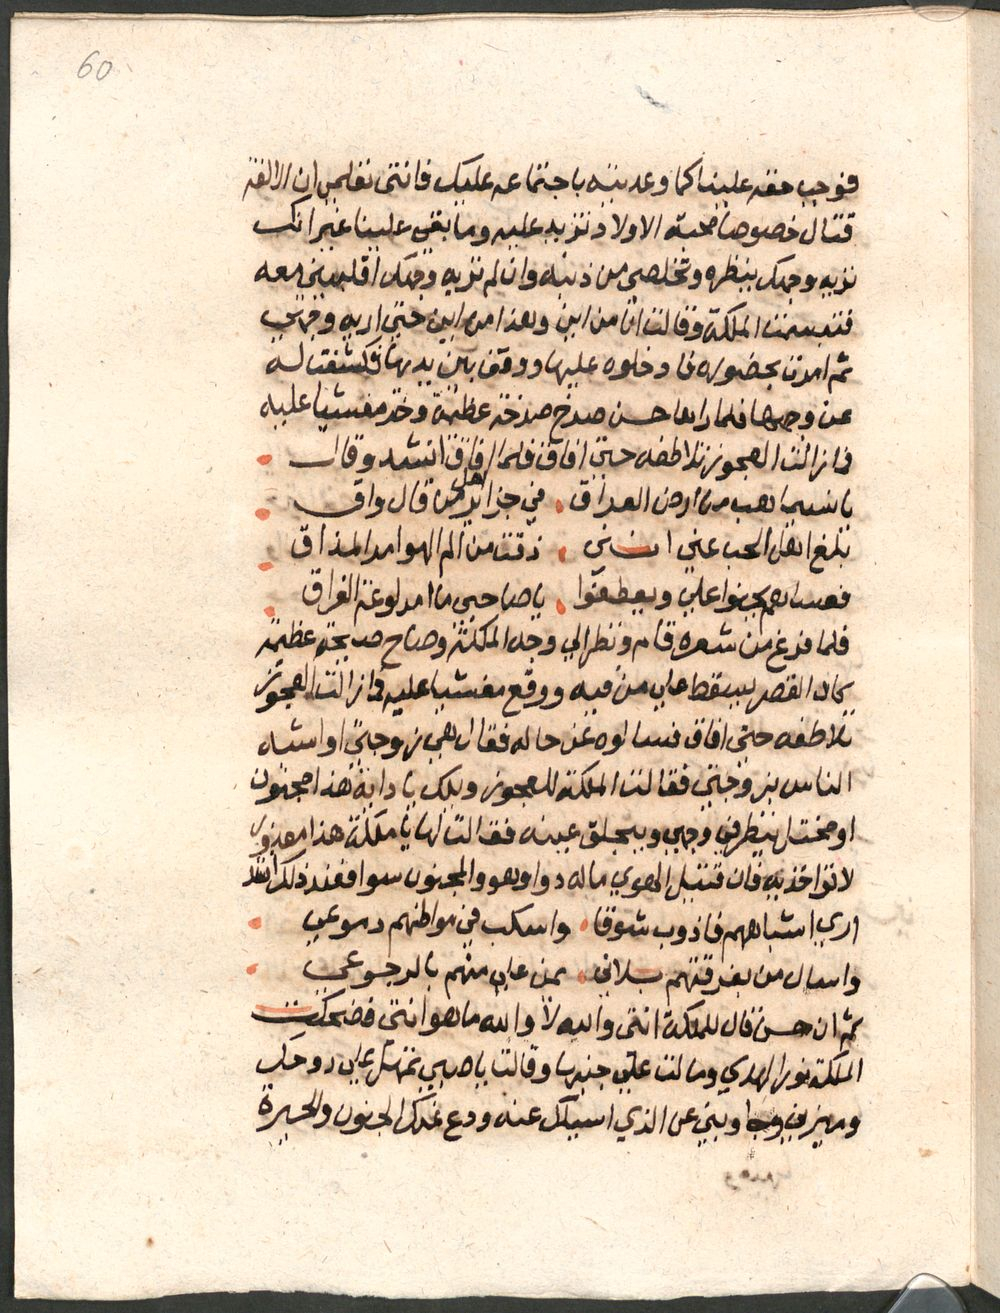 60
فوجب حقه علينا كما وعديته باجتماعه عليك فانتي تعلمين ان الالفة
قتال خصوصا محبة الاولاد تزيد عليه وما بقي علينا غير انك
تريه وجهك ينظره وتخلصي من ذنبه وان لم تريه وجهك اقلبتني معه
فتبسمت الملكة وقالت انا من اين وهذا من اين حتي اريه وجهي
ثم امرت بحضوره فادخلوه عليها ووقف بين يديها فكشفت له
عن وجهها فلما راها حسن صرخ صرخة عظيمة وخر مغشيا عليه
فا زالت العجوز تلاطفه حتي افاق فلما افاق انشد وقال
يا نسيما هب من ارض العراق في جزاير اهل من قال واق
بلغ اهل الحب عني انني ذقت من الم الهوا مر المذاق
فعساهم يحنوا علي ويعطفوا يا صاحبي ما امر لوعة الفراق
فلما فرغ من شعره قام ونظر الي وجه الملكة وصاح صيحة عظيمة
كاد القصر ليسقط علي من فيه ووقع مغشيا عليه فا زالت العجوز
تلاطفه حتي افاق فسالوه عن حاله فقال هي زوجتي او اشبه
الناس بزوجتي فقالت الملكة للعجوز ويلك يا داية هذا مجنون
او مختل ينظر في وجهي ويبحلق عينه فقالت لها يا ملكة هذا معذور
لا تواخذيه فان قتيل الهوي ما له دوا وهو والمجنون سوا فعند ذلك انشد
اري اشباههم فاذوب شوقا واسكب في مواطنهم دموعي
واسال من بفرقتهم بلاني يمن علي منهم بالرجوعي
ثم ان حسن قال للملكة انتي والله لا والله ما هو انتي فضحكت
الملكة نور الهدي ومالت علي جنبها وقالت يا حبيبي تمهل علي روحك
وميزني وجاوبني عن الذي اسيلك عنه ودع عنك الجنون والحيرة